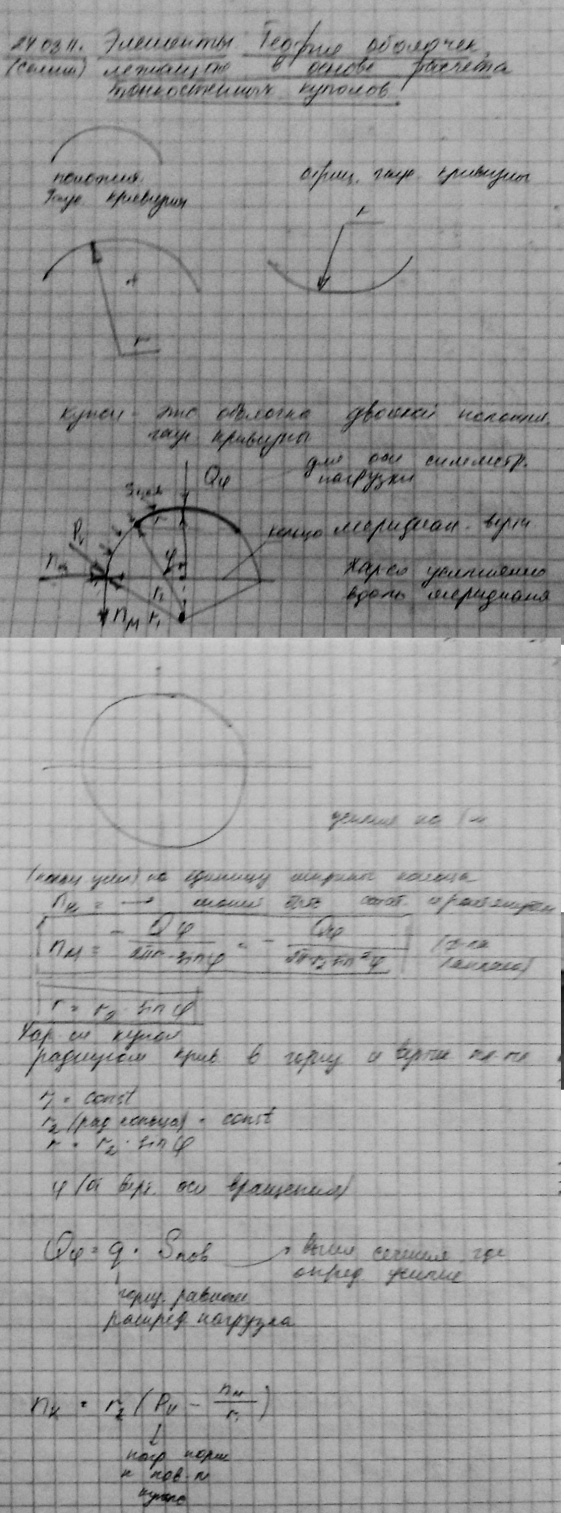 24.03.11. Элементы Теории оболочек,
лежащие в основе расчета
тонкостенных куполов.
положит. отриц. гаус. кривизны
Гаус кривизны
r
r
купол - это оболочка двоякой положит.
гаус кривизны
Qφ для оси симметр.
нагрузки
кольцо меридиан - верт
Хар-ся усилиями
вдоль меридиана
φ
nм r₁
усилия на 1 м
на единицу ширины кольца
nк = →
nм = - Qφ / 2πr·sinφ = - Qφ / 2πr₂sin²φ
r = r₂ · sinφ
Хар-ся купол
радиусом крив в гориз и вертик пл-ти
r₁ = const
r₂ (рад кольца) = const
r = r₂ · sinφ
φ (от верт. оси вращения)
Qφ = q · Sпов → выше сечения, где
опред. усилие
гориз. равном
распред нагрузка
nк = r₂ (Pν - nм / r₁)
нагр норм
к пов-ти
купола